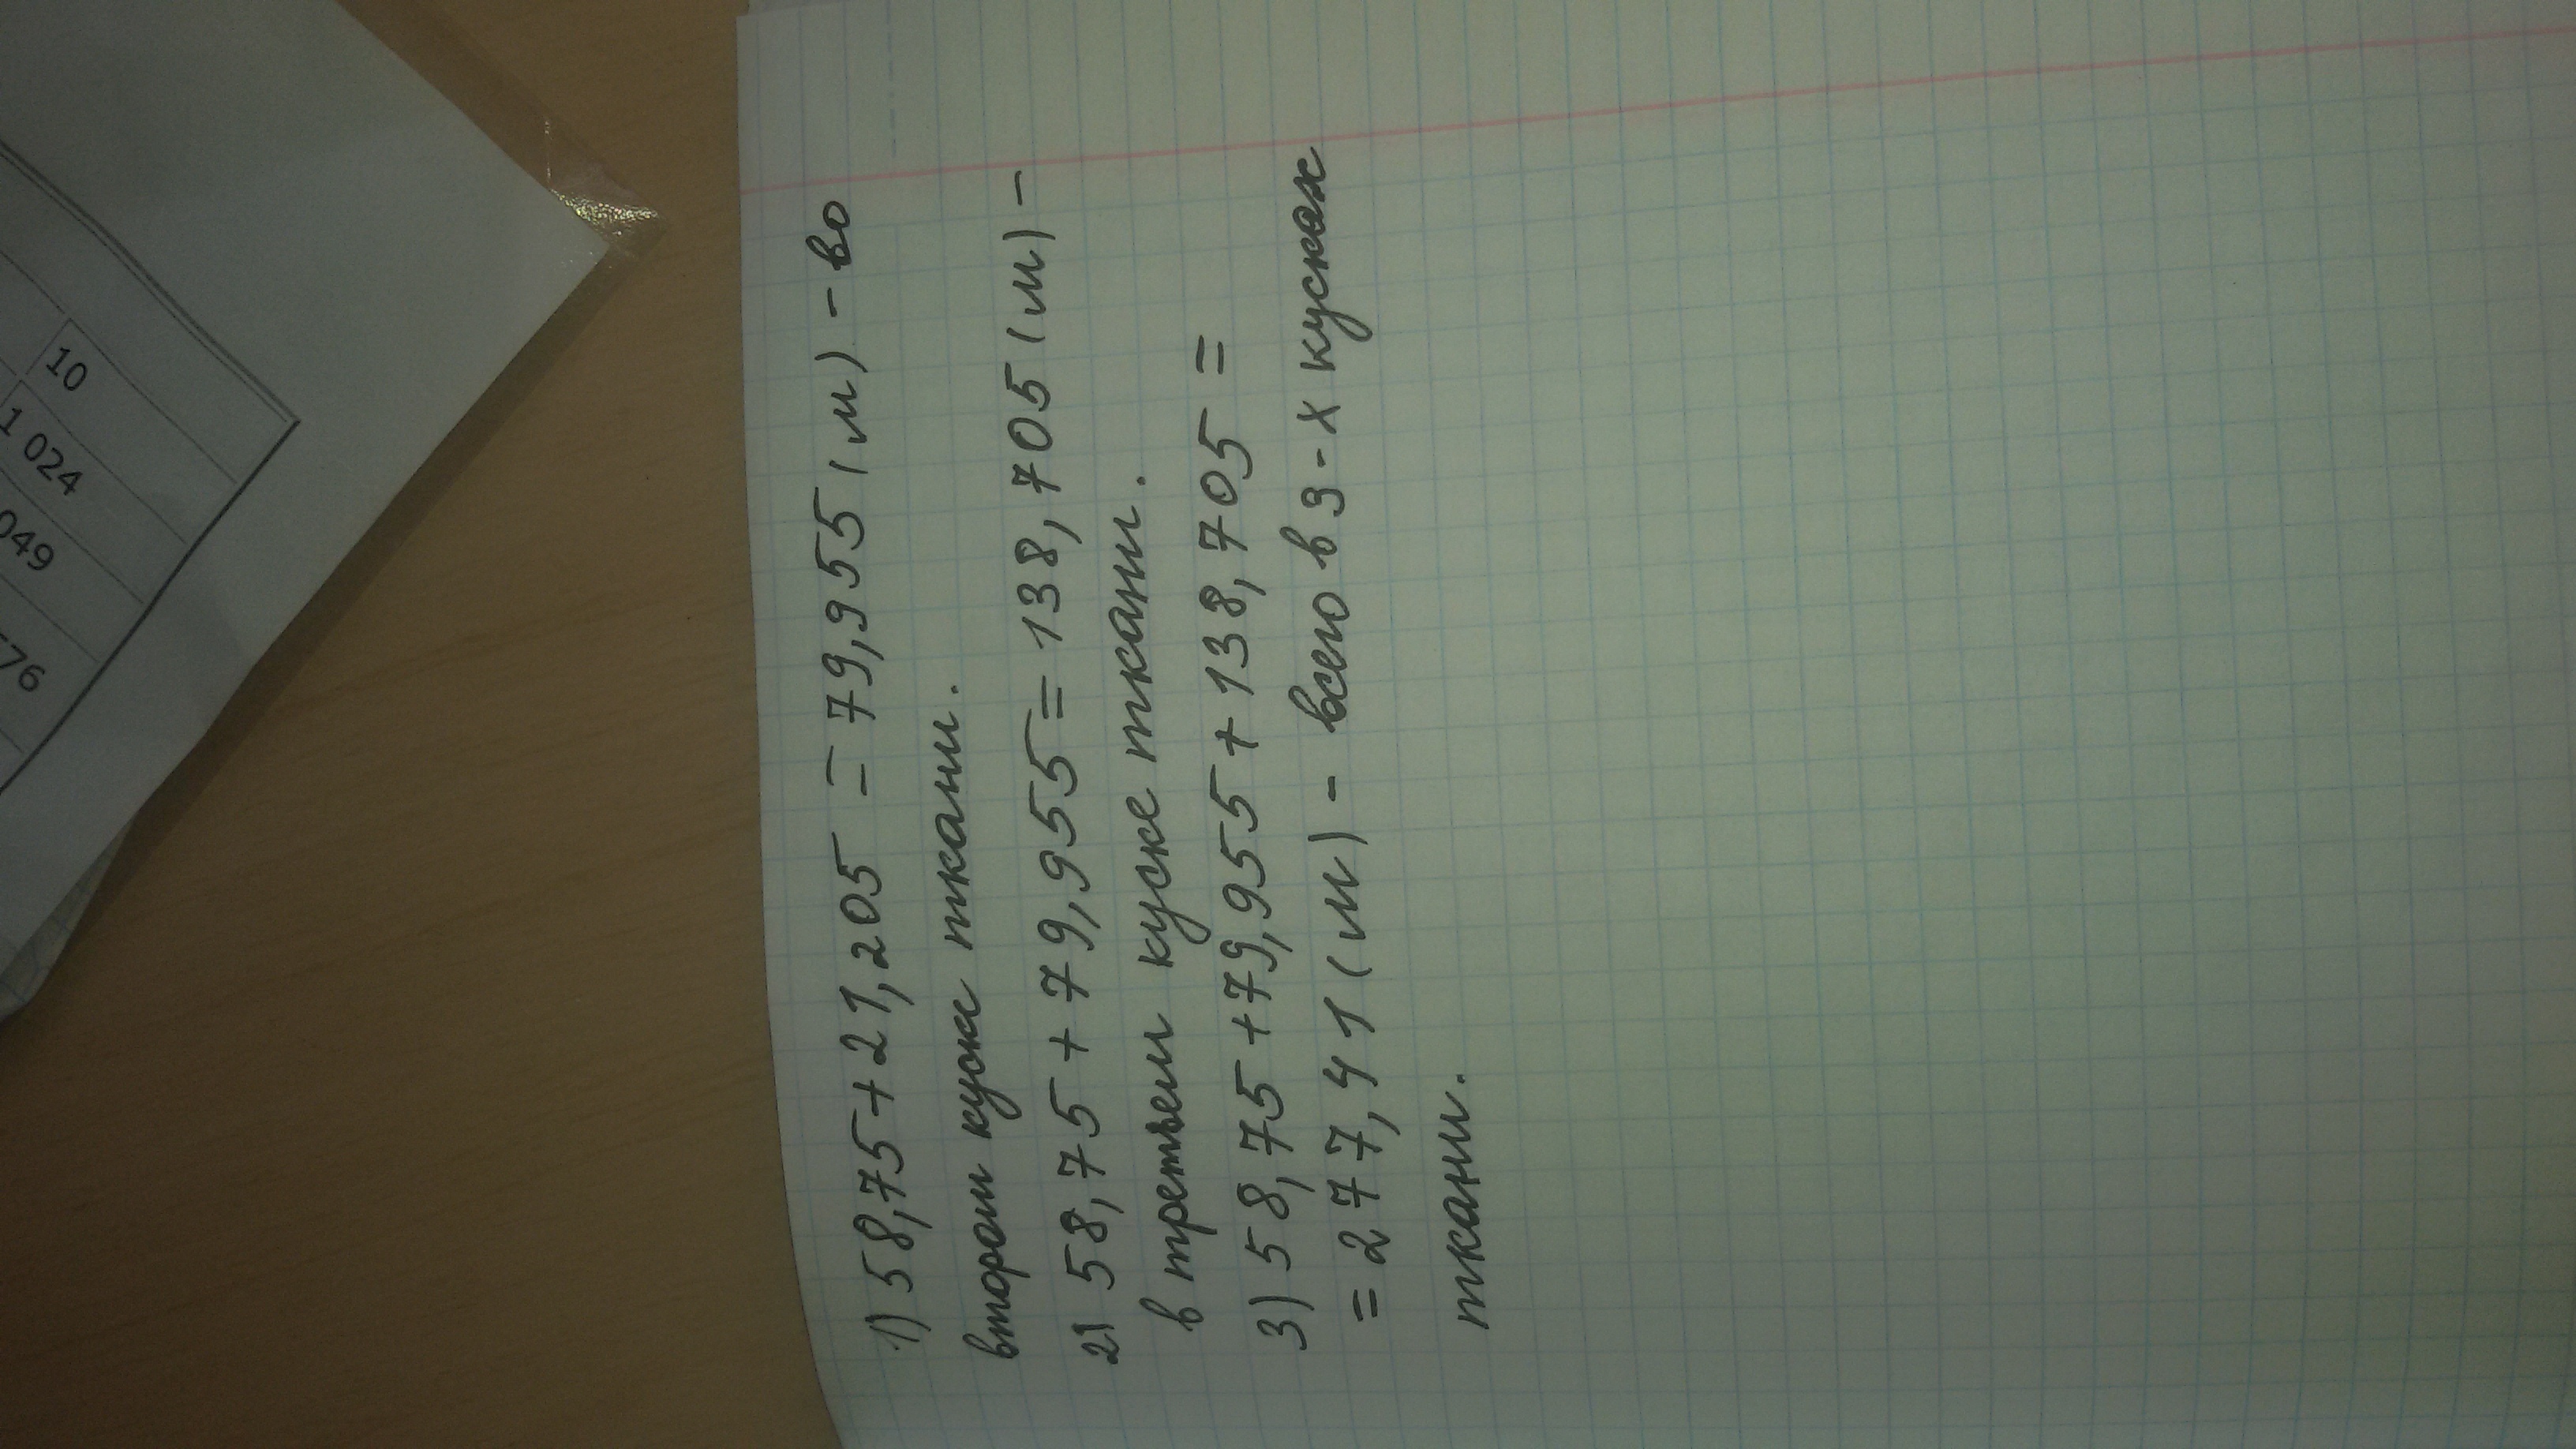 1) 58,75 + 21,205 = 79,955 (м) - во
втором куске ткани.
2) 58,75 + 79,955 = 138,705 (м) -
в третьем куске ткани.
3) 58,75 + 79,955 + 138,705 =
= 277,41 (м) - всего в 3-х кусках
ткани.
10
1 024
049
76